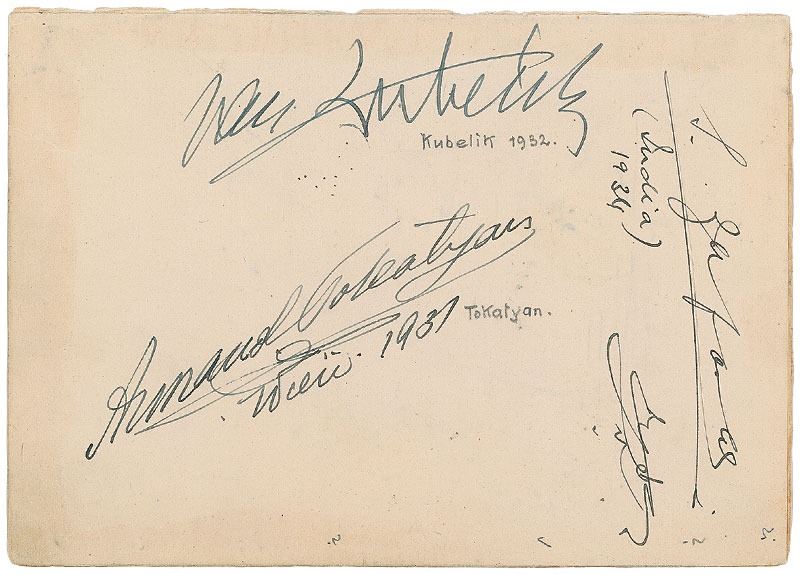 Jan Kubelik
Kubelik 1932.
Armand Tokatyan
Wien. 1931
Tokatyan.
S.
(India)
1934